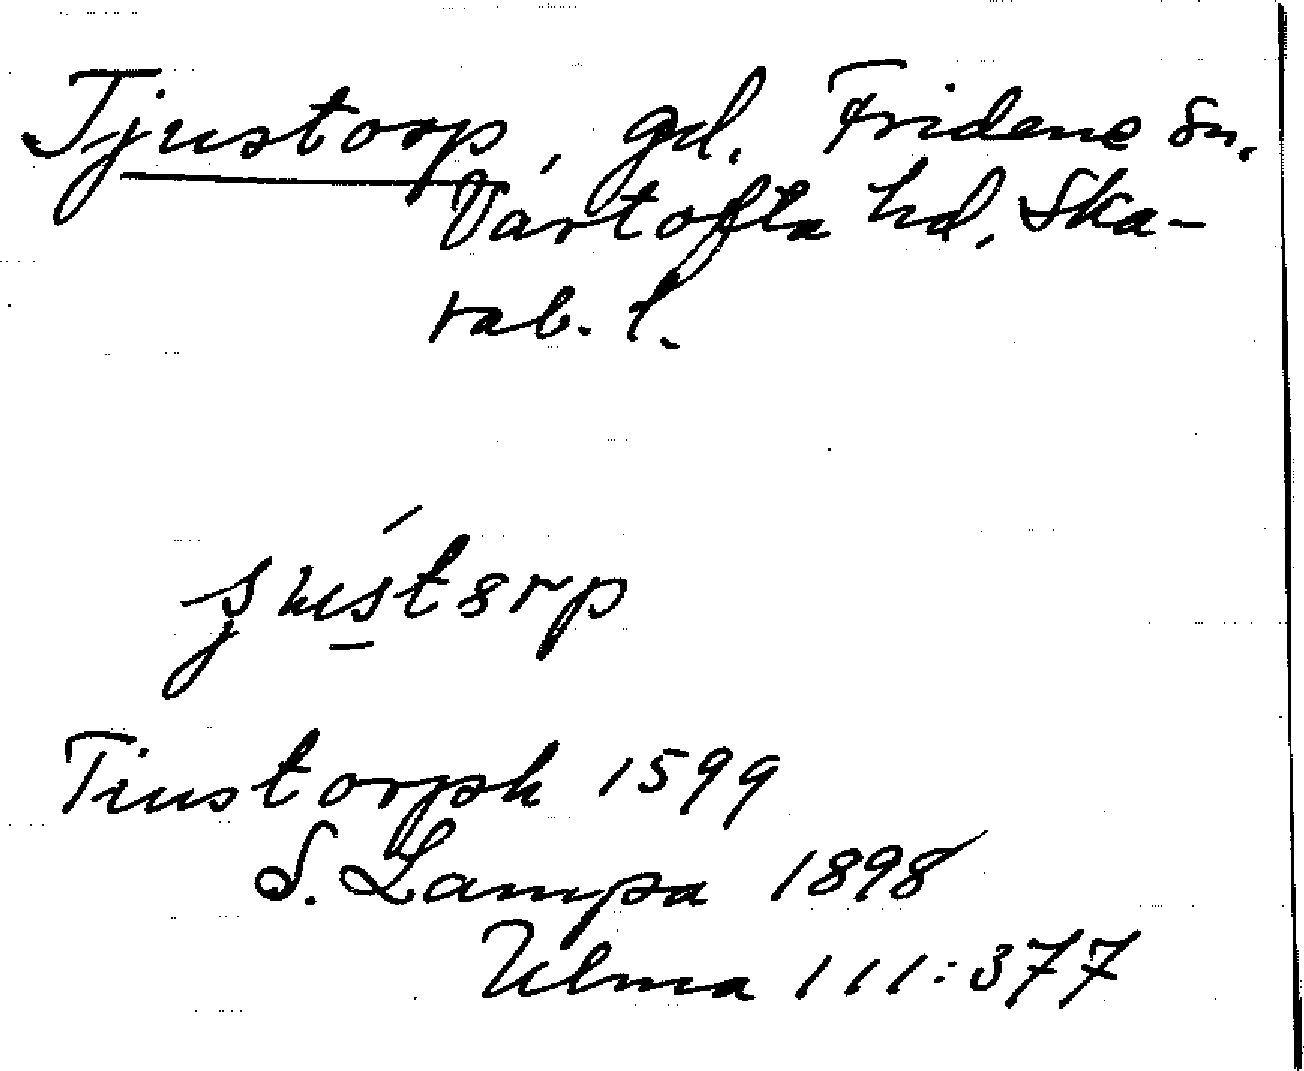 Tjustorp, gd. Fridene sn.
Vartofta hd. Ska-
rab. l.
Tiustorph 1599
S. Lampa 1898
Ulma 111:377